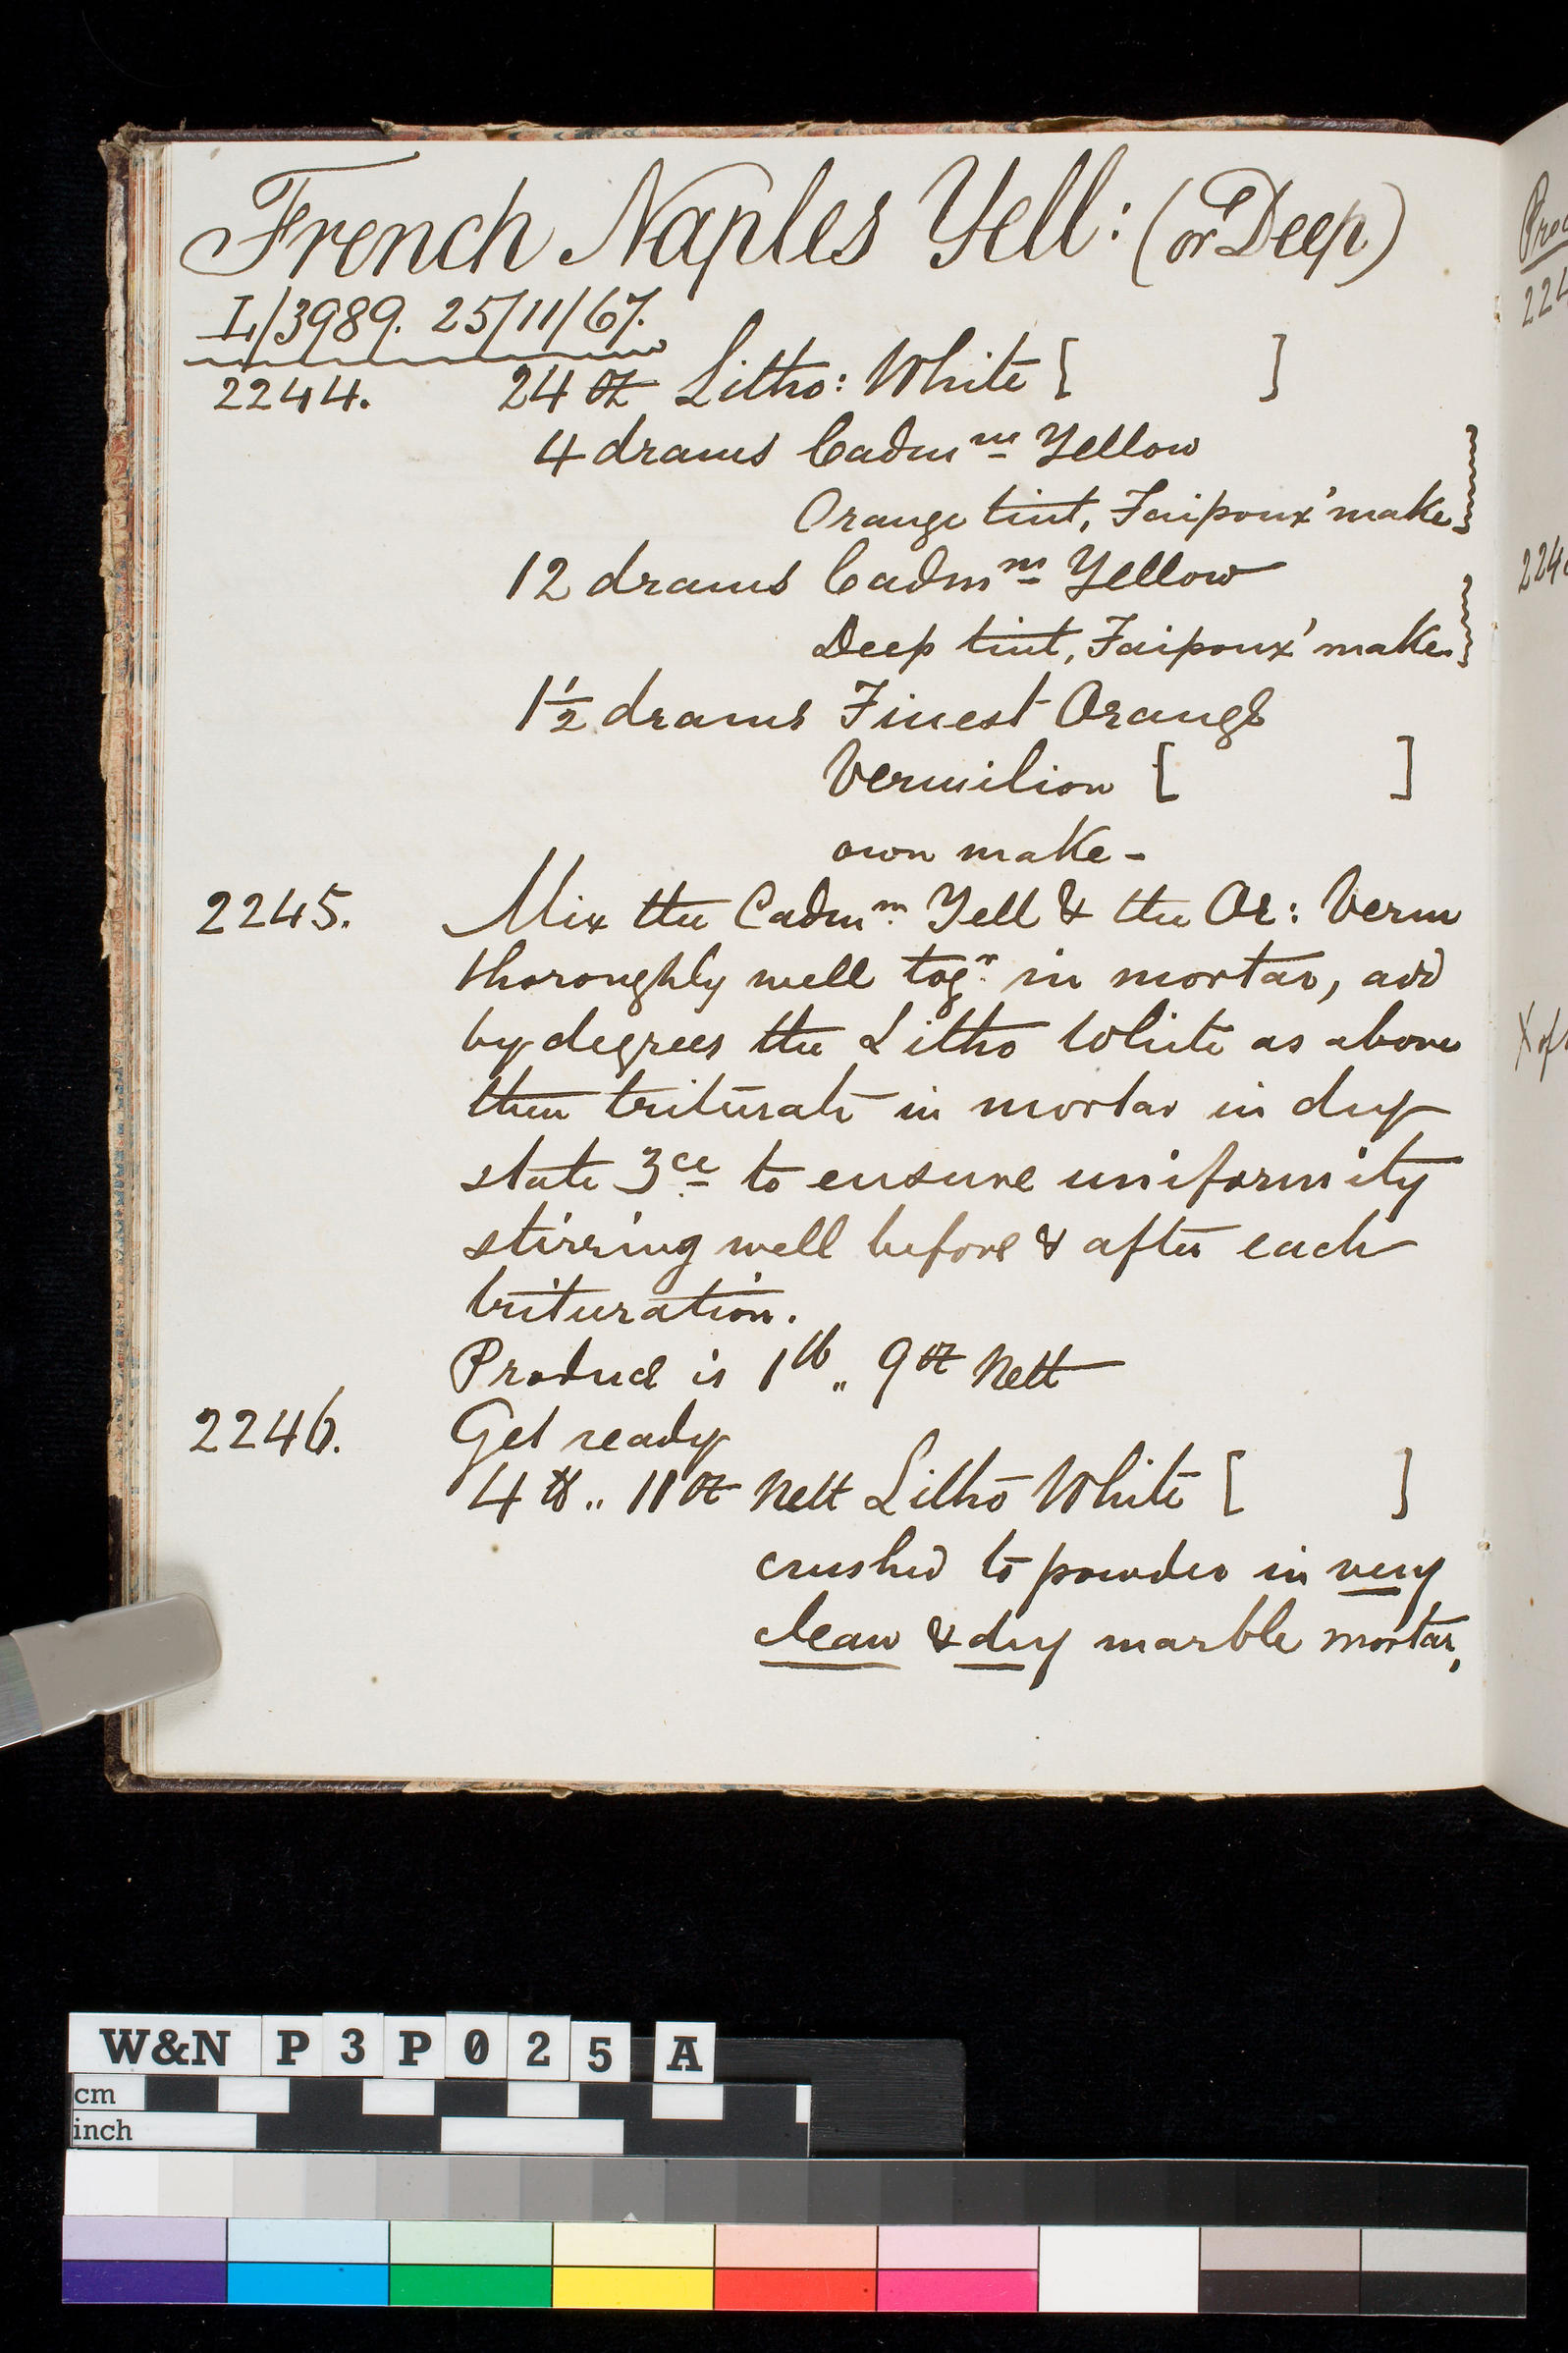 French Naples Yell: (or Deep)
L/3989. 25/11/67.
2244. 24 oz Litho: White [ ]
4 drams Cadm^m Yellow
Orange tint, Faipoux' make }
12 drams Cadm^m Yellow
Deep tint, Faipoux' make. }
1½ drams Finest Orange
Vermilion [ ]
own make -
2245. Mix the Cadm^m. Yell & the Or: Verm
thoroughly well tog^r. in mortar, add
by degrees the Litho White as above
then triturate in mortar in dry
state 3^ce to ensure uniformity
stirring well before & after each
trituration.
Produce is 1 lb ,, 9 oz Nett
2246. Get ready
4 lb ,, 11 oz Nett Litho White [ ]
crushed to powder in very
clean & dry marble mortar,
224
224
X of
W&N P3P025 A
cm
inch